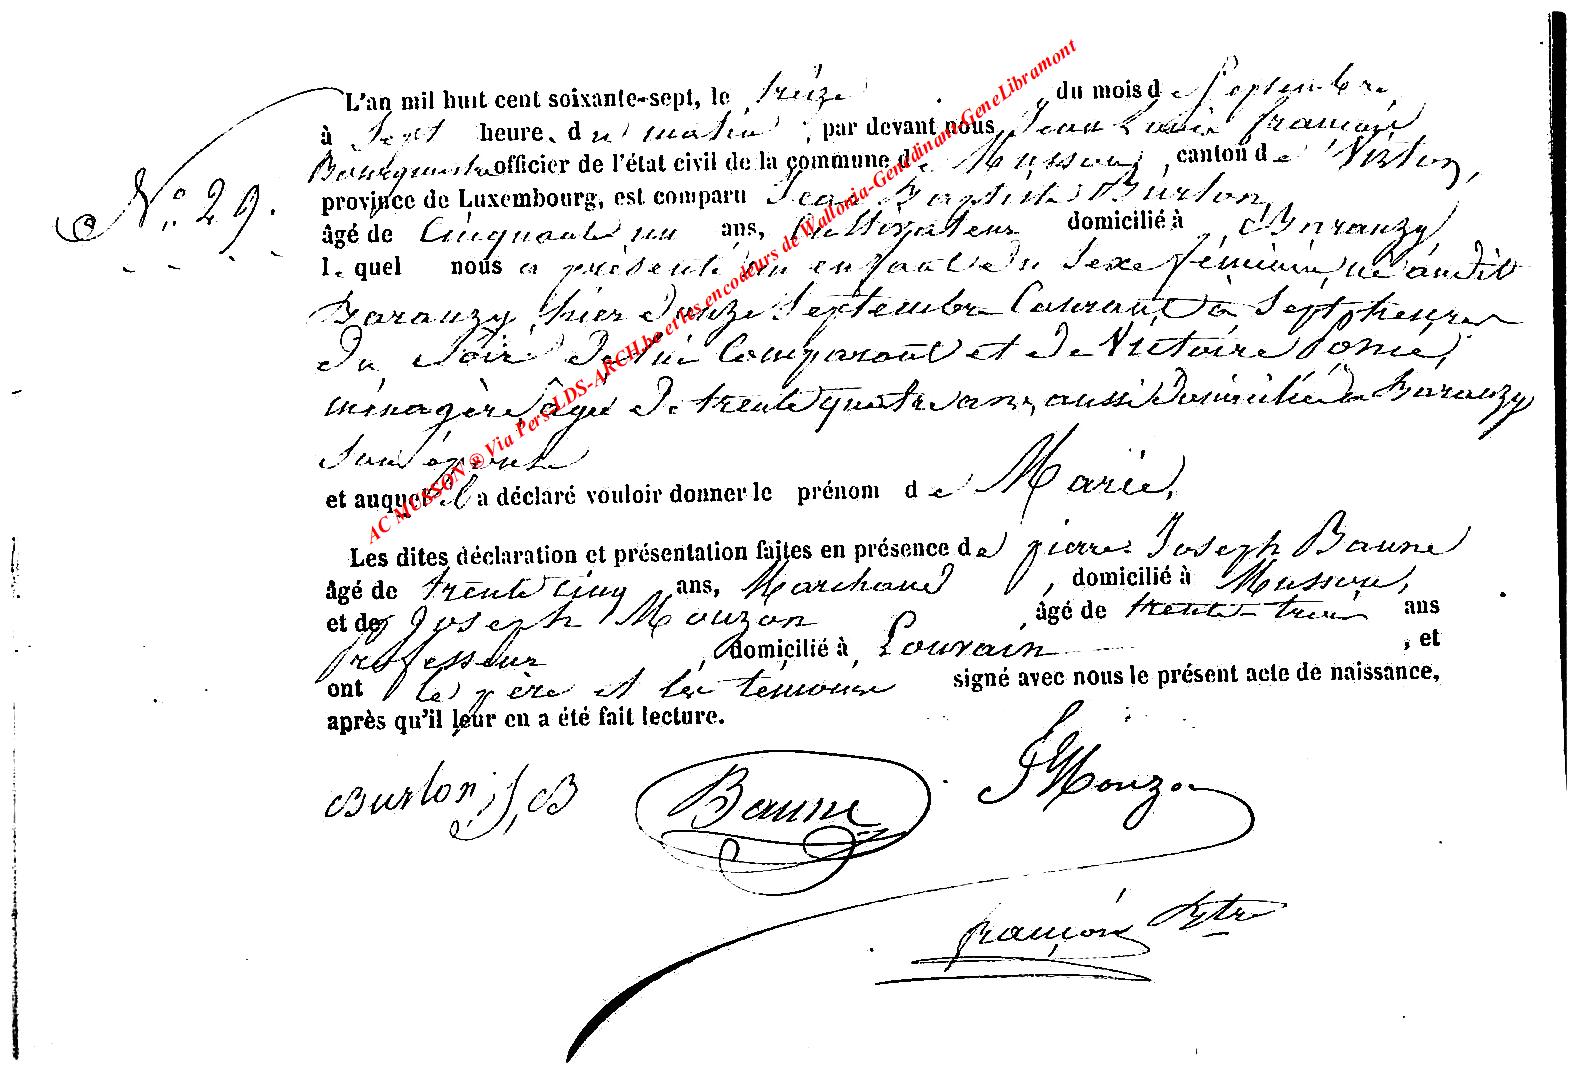 L'an mil huit cent soixante-sept, le treize du mois de Septembre
à Sept heure. du matin, par devant nous Jean Louis françois
Bourgmestre officier de l'état civil de la commune de Musson, canton de Virton,
N° 29.
province de Luxembourg, est comparu Jean Baptiste Burlon,
âgé de Cinquante un ans, Cultivateur domicilié à Baranzy
lequel nous a présenté un enfant du Sexe féminin, né audit
Baranzy, hier douze Septembre Courant à Sept heures
du Soir de lui Comparant et de Victoire
ménagère, âgée de trente quatre ans, aussi domiciliée à Baranzy
Son épouse
et auquel il a déclaré vouloir donner le prénom de Marie,
Les dites déclaration et présentation faites en présence de pierre Joseph Baune
âgé de trente cinq ans, Marchand, domicilié à Musson,
et de Joseph Mouzon, âgé de trente-trois ans
Professeur, domicilié à Louvain, et
ont le père et les témoins signé avec nous le présent acte de naissance,
après qu'il leur en a été fait lecture.
Burlon, J, B Baune J Mouzon
françois Bgtre
AC MUSSON ® Via Pers-LDS-ARCH.be et les encodeurs de Wallonia-Genedinant-GeneLibramont